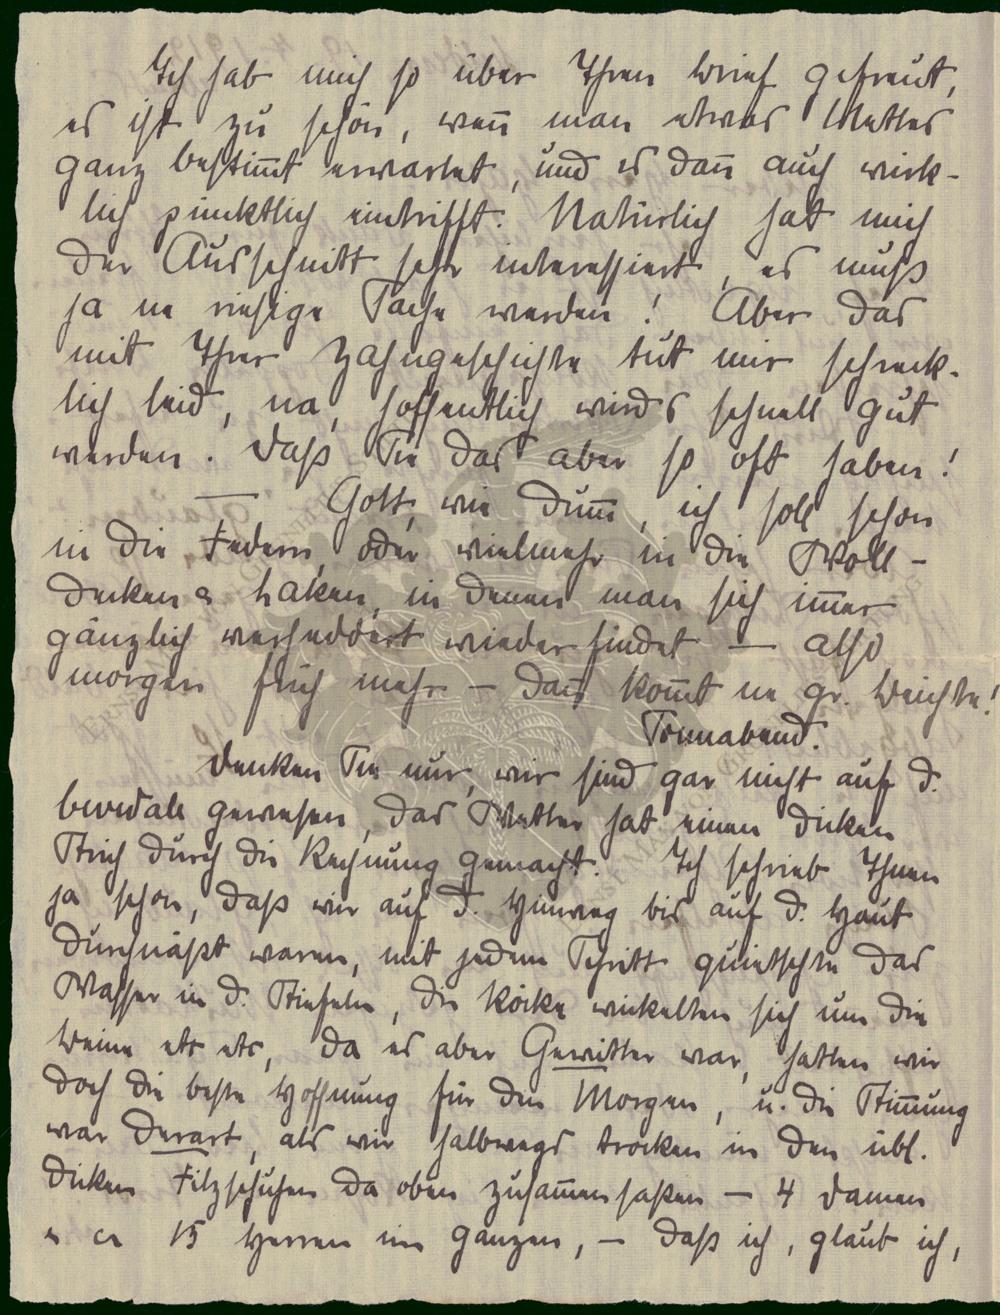 Ich hab mich so über Ihren Brief gefreut,
es ist zu schön, weñ man etwas Nettes
ganz bestim̃t erwartet, und es dañ auch wirk-
lich pünktlich eintrifft. Natürlich hat mich
der Ausschnitt sehr interessiert, es muß
ja ne riesige Sache werden! Aber das
mit Ihrer Zahngeschichte tut mir schreck-
lich leid, na, hoffentlich wird's schnell gut
werden. Daß Sie das aber so oft haben!
— Gott, wie dum̃, ich soll schon
in die Federn, oder vielmehr in die Woll-
decken & Laken, in denen man sich im̃er
gänzlich verheddert wieder findet — also
morgen früh mehr — dañ kom̃t ne gr. Beichte!
Sonnabend.
Denken Sie nur, wir sind gar nicht auf d.
gewesen, das Wetter hat einen dicken
Strich durch die Rechnung gemacht. Ich schrieb Ihnen
ja schon, daß wir auf d. Hinweg bis auf d. Haut
durchnäßt waren, mit jedem Schritt quietschte das
Wasser in d. Stiefeln, die Röcke wickelten sich um die
Beine etc etc, da es aber Gewitter war, hatten wir
doch die beste Hoffnung für den Morgen, u. die Stim̃ung
war derart, als wir halbwegs trocken in den übl.
dicken Filzschuhen da oben zusam̃en saßen — 4 Damen
& ca 15 Herren im ganzen, — daß ich, glaub ich,